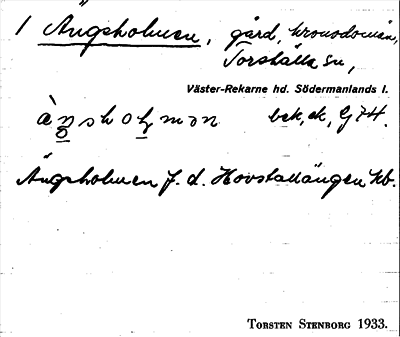 1 Ängsholmen, gård, kronodomän,
Torshälla sn,
Väster-Rekarne hd. Södermanlands l.
Ängsholmen f. d. Hovstallängen kb.
TORSTEN STENBORG 1933.